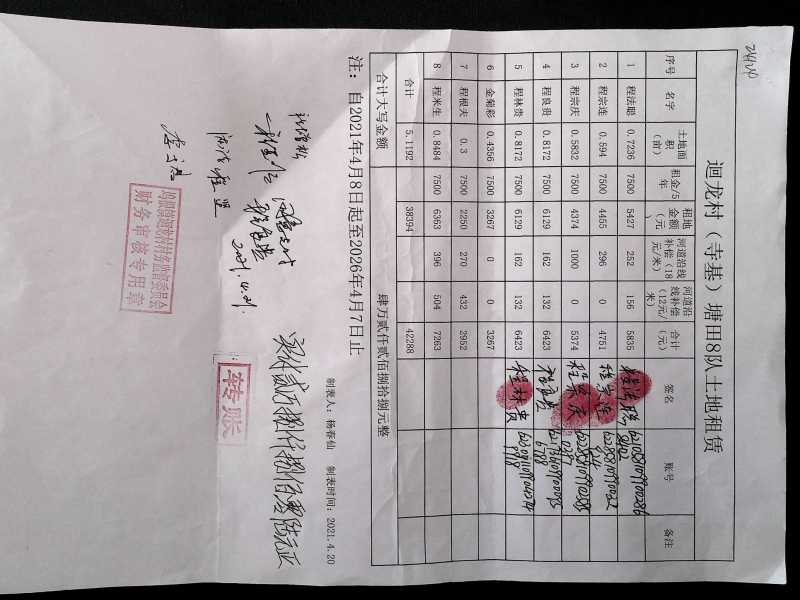 迴龙村（寺基）塘田8队土地租赁
序号 名字 土地面积（亩） 租金/5年 租地金额（元） 河道沿线补偿（18元/米） 河道沿线补偿（12元/米） 合计（元） 签名 账号 备注
1 程法聪 0.7236 7500 5427 252 156 5835 程法聪
2 程宗连 0.594 7500 4455 296 0 4751 程宗连
3 程宗庆 0.5832 7500 4374 1000 0 5374 程宗庆
4 程良贵 0.8172 7500 6129 162 132 6423 程良贵
5 程林贵 0.8172 7500 6129 162 132 6423 程林贵
6 金菊彩 0.4356 7500 3267 0 0 3267
7 程根夫 0.3 7500 2250 270 432 2952
8 程米生 0.8484 7500 6363 396 504 7263
合计 5.1192 38394 42288
合计大写金额 肆万贰仟贰佰捌拾捌元整
注：自2021年4月8日起至2026年4月7日止
制表人：杨春仙 制表时间：2021.4.20
同意支付
2021.4.21.
实付贰万捌仟捌佰零陆元正
转账
村务监督委员会
财务审核专用章